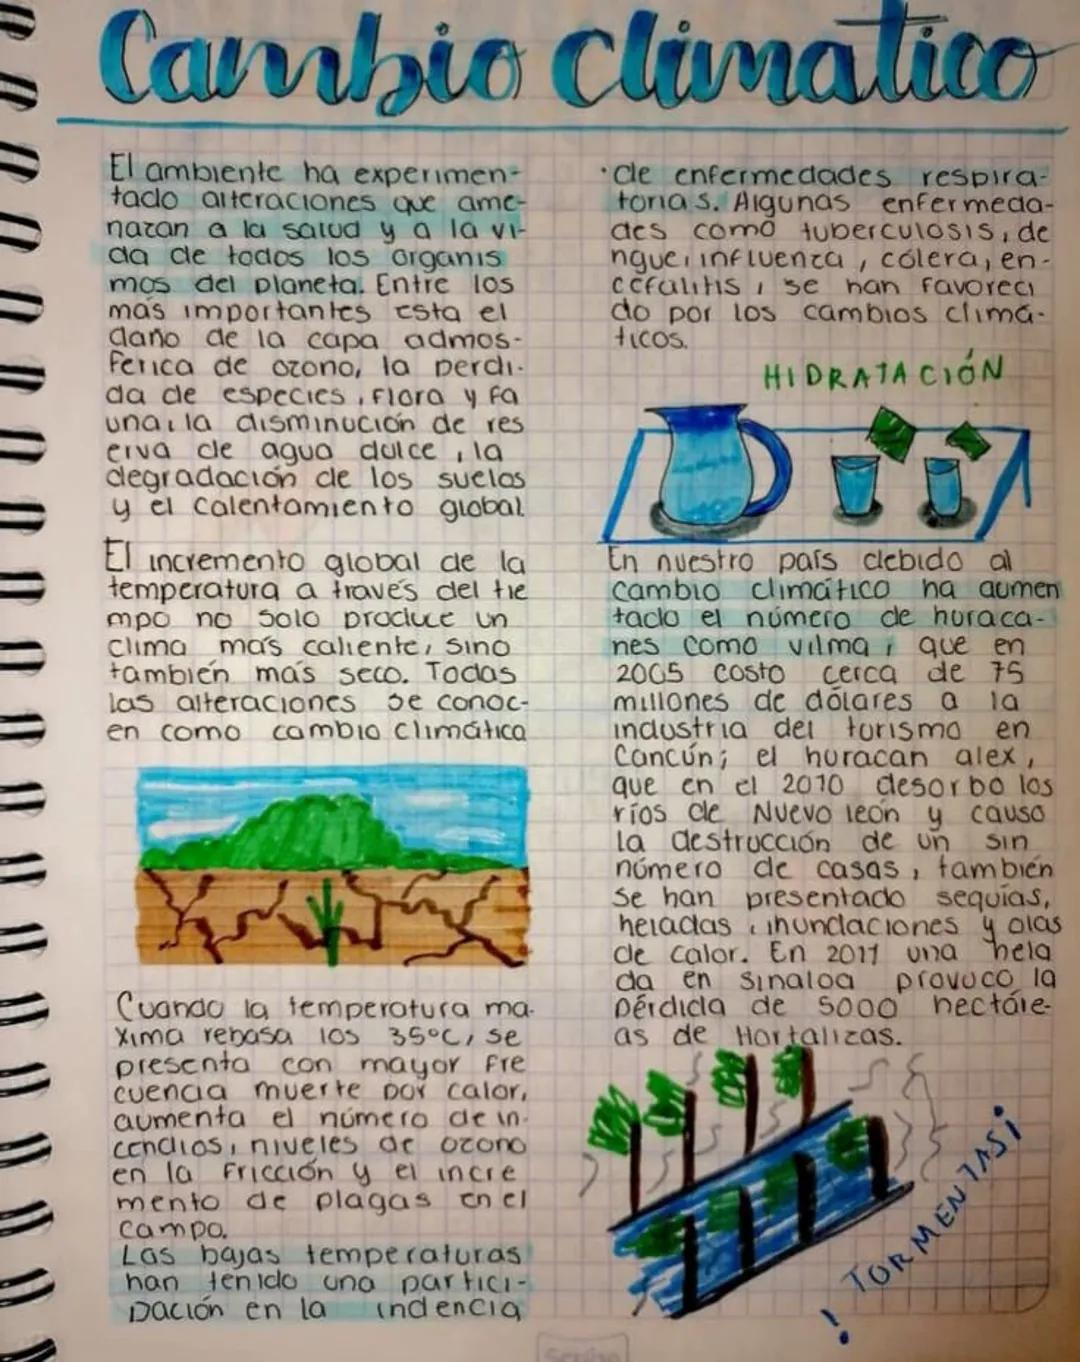 Cambio Climatico
El ambiente ha experimen-
tado alteraciones que ame-
nazan a la salud y a la vi-
da de todos los organis
mos del planeta. Entre los
más importantes esta el
daño de la capa admos-
ferica de ozono, la perdi-
da de especies, flora y fa
una, la disminución de res
erva de agua dulce, la
degradación de los suelos
y el Calentamiento global
El incremento global de la
temperatura a través del tie
mpo no solo produce un
clima más caliente, sino
también más seco. Todas
las alteraciones se conoc-
en como cambio climática
Cuando la temperatura ma-
xima rebasa los 35°C, se
presenta con mayor fre
cuencia muerte por calor,
aumenta el número de in-
cendios, niveles de ozono
en la fricción y el incre
mento de plagas en el
campo.
Las bajas temperaturas
han tenido una partici-
pación en la indencia
·de enfermedades respira-
torias. Algunas enfermeda-
des como tuberculosis, de
ngue, influenza, cólera, en-
cefalitis, se han favoreci
do por los cambios climá-
ticos.
HIDRATACIÓN
En nuestro país debido al
cambio climático ha aumen
tado el número de huraca-
nes como vilma, que en
2005 costo cerca de 75
millones de dólares a la
industria del turismo en
Cancún; el huracan alex,
que en el 2010 desorbo los
ríos de Nuevo león y causo
la destrucción de un sin
número de casas, también
se han presentado sequías,
heladas, inundaciones y olas
de calor. En 2011 una hela
da en Sinaloa provoco la
pérdida de 5000 hectáre-
as de Hortalizas.
! TORMENTAS¡
Scribe